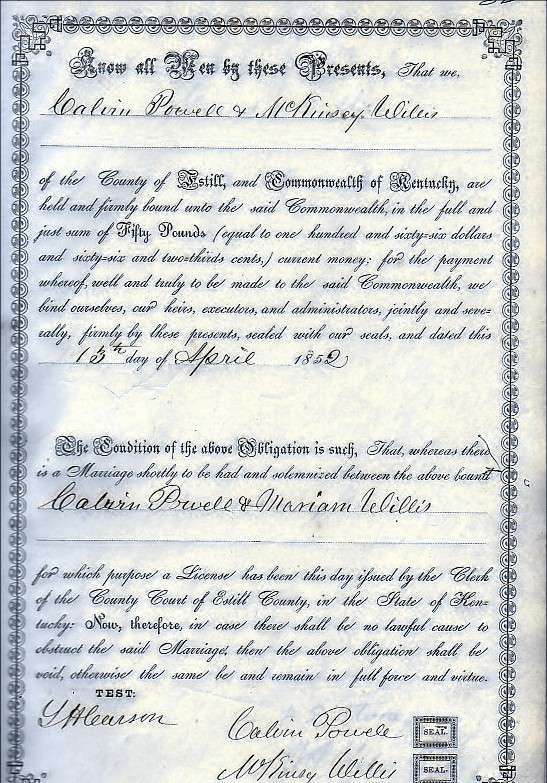 Know all Men by these Presents, That we,
Calvin Powell & McKinsey Willis
of the County of Estill, and Commonwealth of Kentucky, are
held and firmly bound unto the said Commonwealth, in the full and
just sum of Fifty Pounds (equal to one hundred and sixty-six dollars
and sixty-six and two-thirds cents,) current money: for the payment
whereof, well and truly to be made to the said Commonwealth, we
bind ourselves, our heirs, executors, and administrators, jointly and seve-
rally, firmly by these presents, sealed with our seals, and dated this
13th day of April 1852
The Condition of the above Obligation is such, That, whereas there
is a Marriage shortly to be had and solemnized between the above bound
Calvin Powell & Mariam Willis
for which purpose a License has been this day issued by the Clerk
of the County Court of Estill County, in the State of Ken-
tucky: Now, therefore, in case there shall be no lawful cause to
obstruct the said Marriage, then the above obligation shall be
void, otherwise the same be and remain in full force and virtue.
TEST:
Calvin Powell SEAL.
McKinsy Willis SEAL.